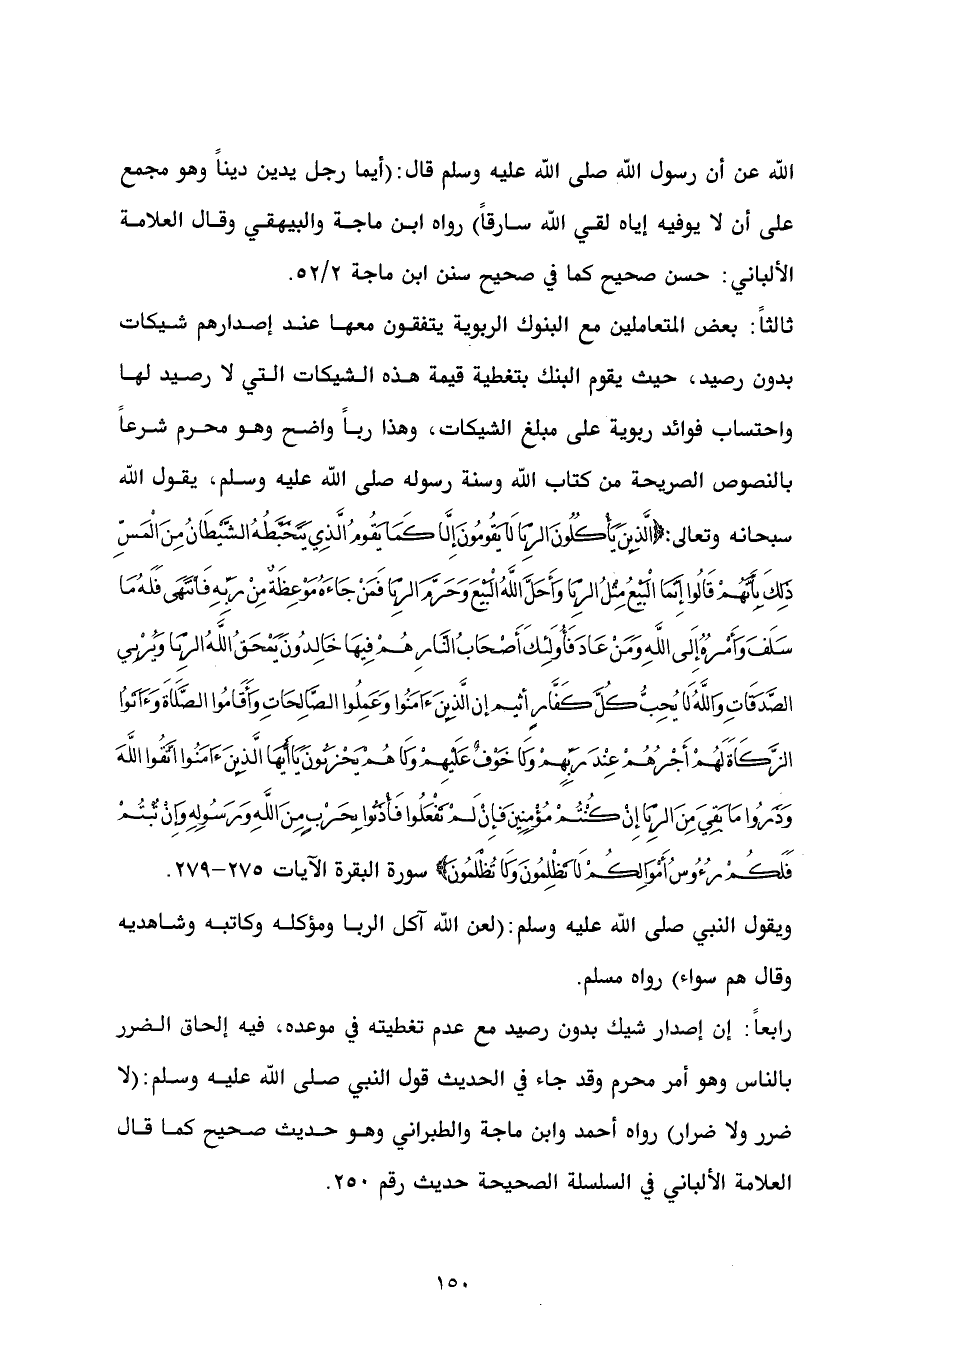 الله عن أن رسول الله صلى الله عليه وسلم قال:(أيما رجل يدين ديناً وهو مجمع
على أن لا يوفيه إياه لقي الله سارقاً) رواه ابن ماجة والبيهقي وقال العلامة
الألباني: حسن صحيح كما في صحيح سنن ابن ماجة ٥٢/٢.
ثالثاً: بعض المتعاملين مع البنوك الربوية يتفقون معها عند إصدارهم شيكات
بدون رصيد، حيث يقوم البنك بتغطية قيمة هذه الشيكات التي لا رصيد لها
واحتساب فوائد ربوية على مبلغ الشيكات، وهذا رباً واضح وهو محرم شرعاً
بالنصوص الصريحة من كتاب الله وسنة رسوله صلى الله عليه وسلم، يقول الله
سبحانه وتعالى:﴿الَّذِينَ يَأْكُلُونَ الرِّبَا لَا يَقُومُونَ إِلَّا كَمَا يَقُومُ الَّذِي يَتَخَبَّطُهُ الشَّيْطَانُ مِنَ الْمَسِّ
ذَلِكَ بِأَنَّهُمْ قَالُوا إِنَّمَا الْبَيْعُ مِثْلُ الرِّبَا وَأَحَلَّ اللَّهُ الْبَيْعَ وَحَرَّمَ الرِّبَا فَمَنْ جَاءَهُ مَوْعِظَةٌ مِنْ رَبِّهِ فَانْتَهَى فَلَهُ مَا
سَلَفَ وَأَمْرُهُ إِلَى اللَّهِ وَمَنْ عَادَ فَأُولَئِكَ أَصْحَابُ النَّارِ هُمْ فِيهَا خَالِدُونَ يَمْحَقُ اللَّهُ الرِّبَا وَيُرْبِي
الصَّدَقَاتِ وَاللَّهُ لَا يُحِبُّ كُلَّ كَفَّارٍ أَثِيمٍ إِن الَّذِينَ ءَامَنُوا وَعَمِلُوا الصَّالِحَاتِ وَأَقَامُوا الصَّلَاةَ وَءَاتَوُا
الزَّكَاةَ لَهُمْ أَجْرُهُمْ عِنْدَ رَبِّهِمْ وَلَا خَوْفٌ عَلَيْهِمْ وَلَا هُمْ يَحْزَنُونَ يَاأَيُّهَا الَّذِينَ ءَامَنُوا اتَّقُوا اللَّهَ
وَذَرُوا مَا بَقِيَ مِنَ الرِّبَا إِنْ كُنْتُمْ مُؤْمِنِينَ فَإِنْ لَمْ تَفْعَلُوا فَأْذَنُوا بِحَرْبٍ مِنَ اللَّهِ وَرَسُولِهِ وَإِنْ تُبْتُمْ
فَلَكُمْ رُءُوسُ أَمْوَالِكُمْ لَا تَظْلِمُونَ وَلَا تُظْلَمُونَ﴾ سورة البقرة الآيات ٢٧٥–٢٧٩.
ويقول النبي صلى الله عليه وسلم:(لعن الله آكل الربا ومؤكله وكاتبه وشاهديه
وقال هم سواء) رواه مسلم.
رابعاً: إن إصدار شيك بدون رصيد مع عدم تغطيته في موعده، فيه إلحاق الضرر
بالناس وهو أمر محرم وقد جاء في الحديث قول النبي صلى الله عليه وسلم:(لا
ضرر ولا ضرار) رواه أحمد وابن ماجة والطبراني وهو حديث صحيح كما قال
العلامة الألباني في السلسلة الصحيحة حديث رقم ٢٥٠.
١٥٠